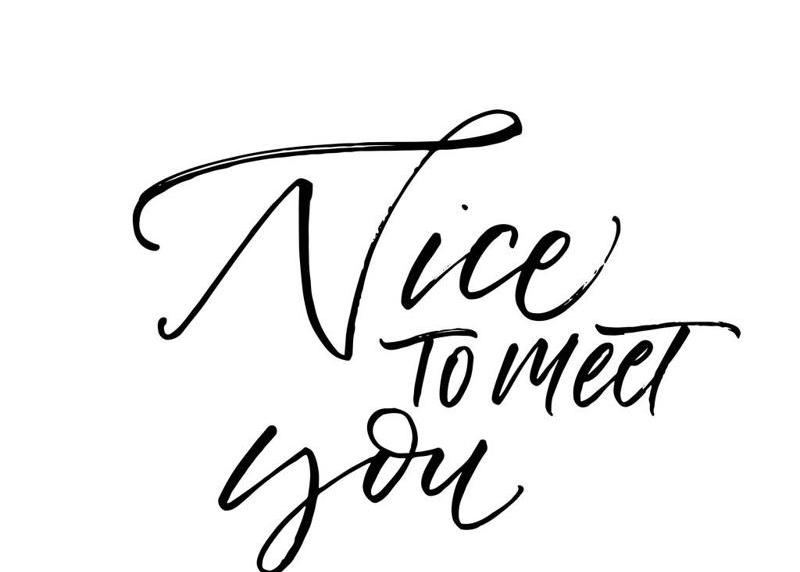 Nice
to meet
you